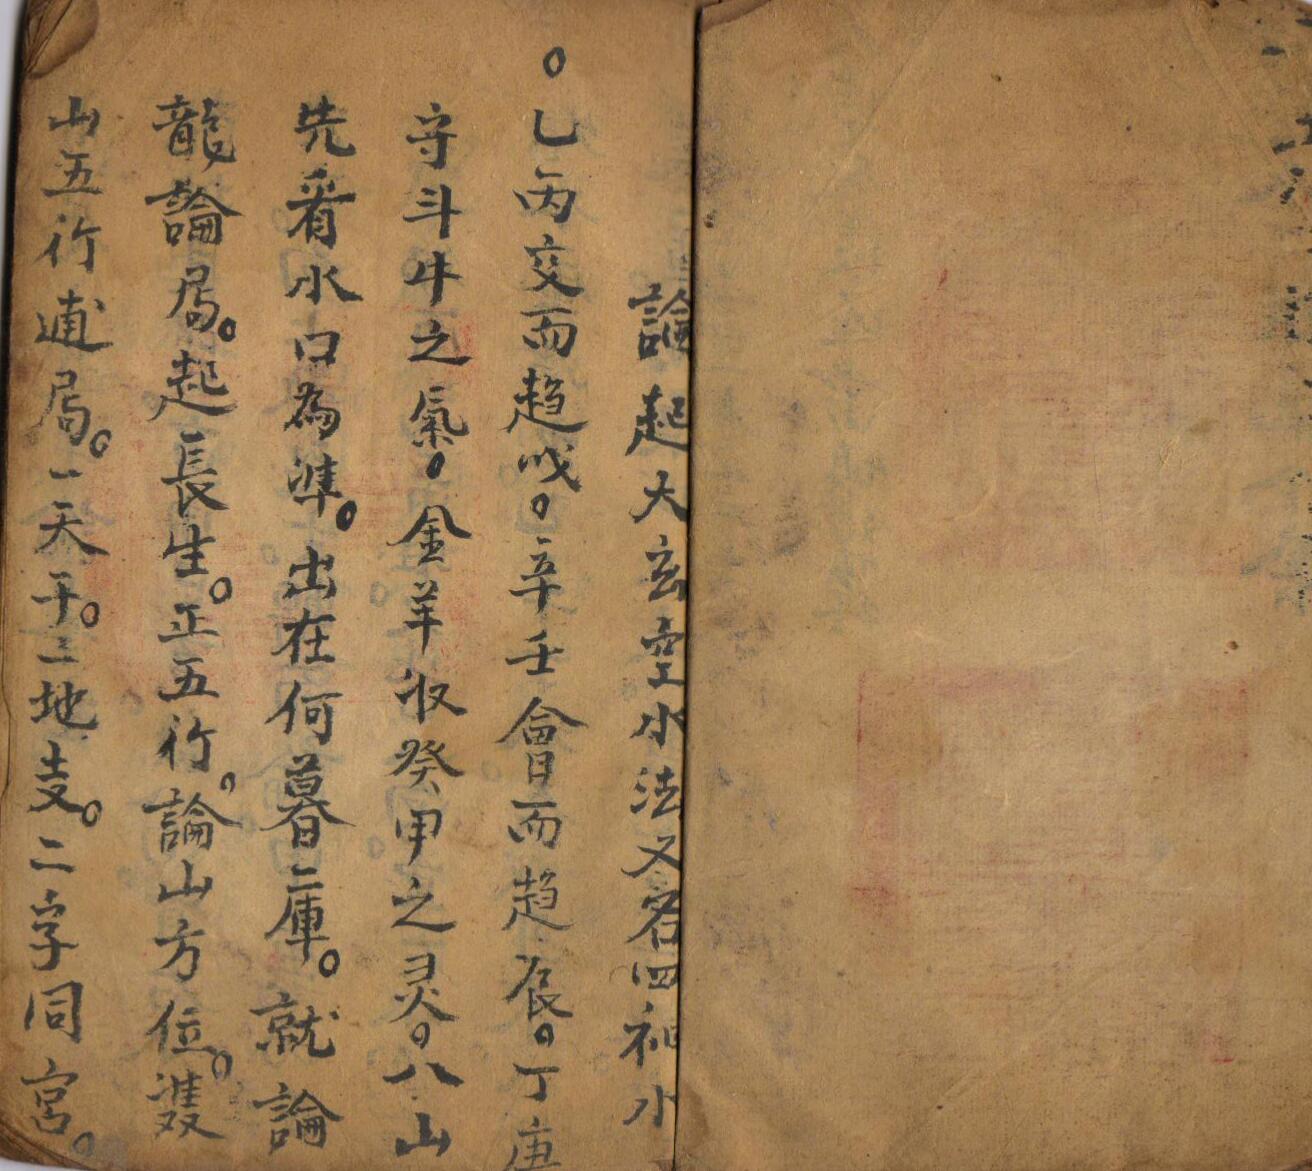 論起大玄空水法又名四祀水
。乙丙交而趋戌。辛壬會而趋辰。丁庚
守斗牛之氣。金羊收癸甲之灵。八山
先看水口為準。出在何暮庫。就論
龍論局。起長生。正五行。論山方位。雙
山五行逋局。一天干。二地支。二字同宮。